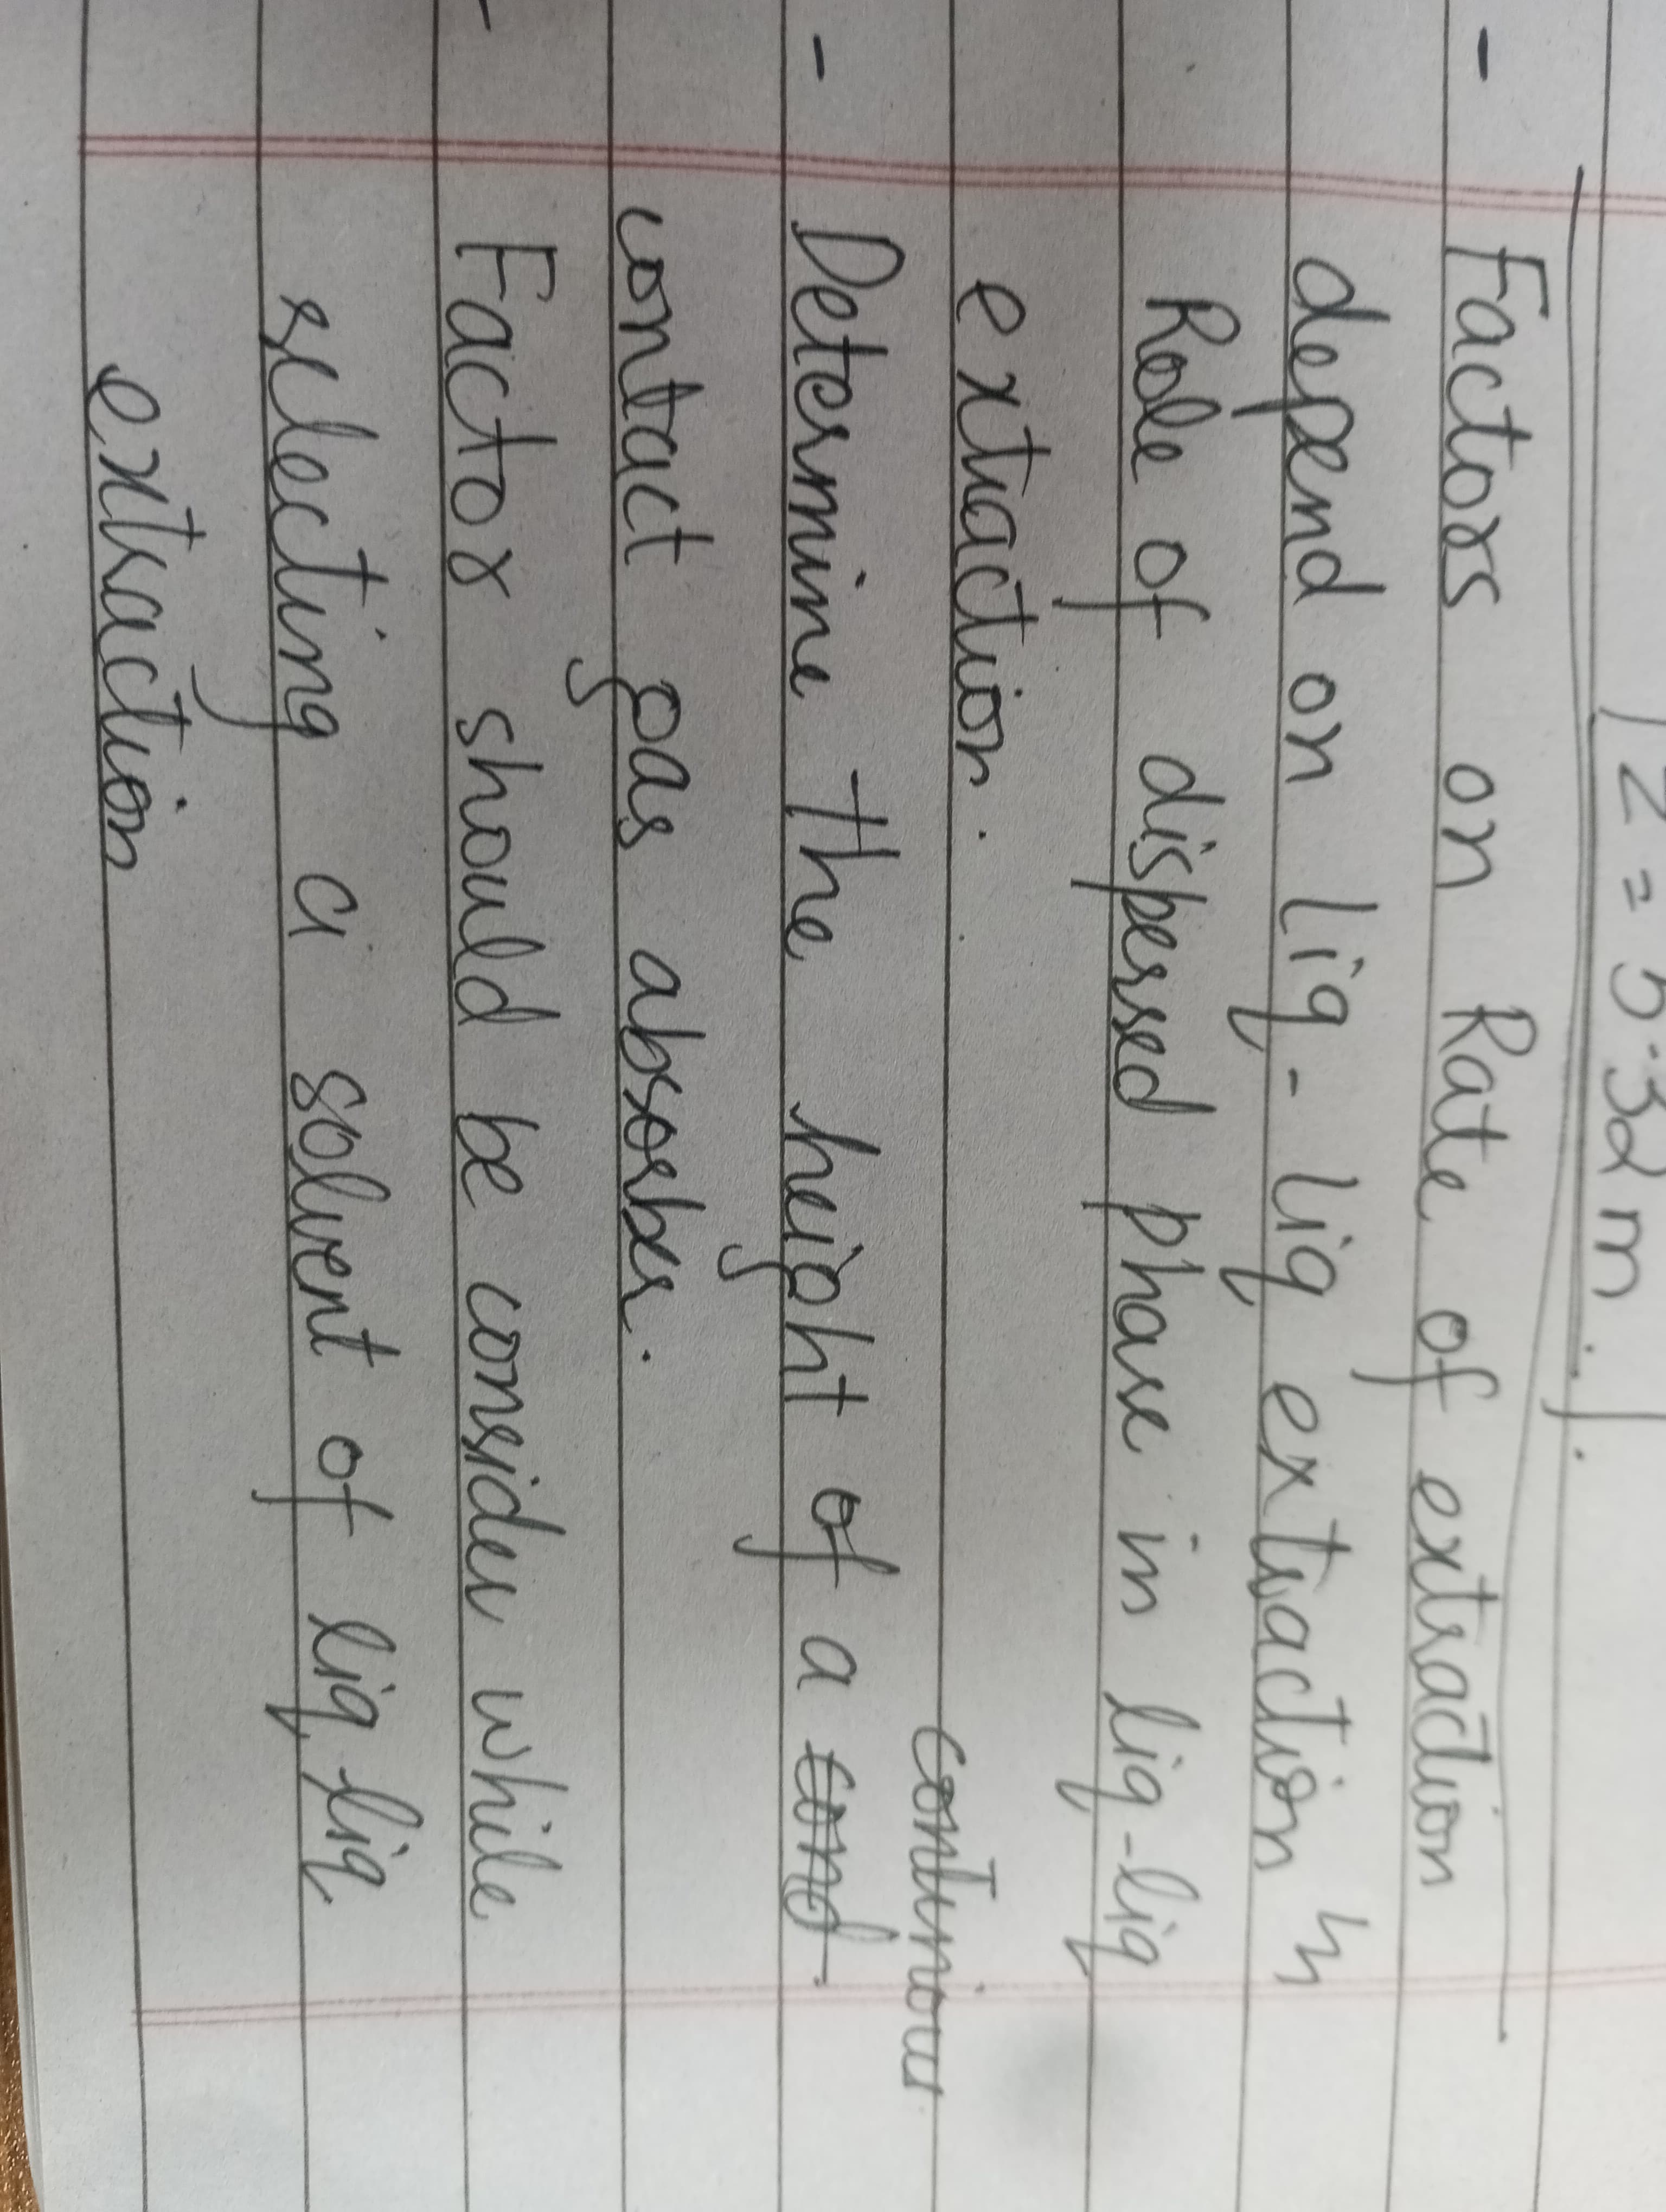 Z = 5.32 m.
- Factors on Rate of extraction
depend on liq - liq extraction
Role of dispersed phase in liq-liq
extraction.
continuous
- Determine the height of a cond
contact gas absorber.
- Factor should be consider while
selecting a solvent of liq liq
extraction